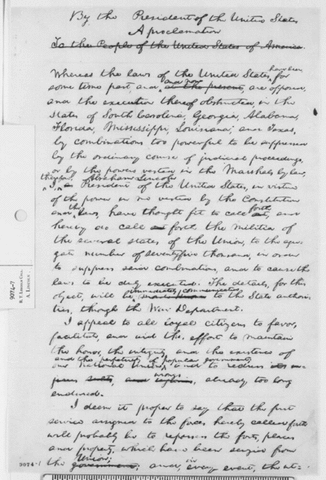 By the President of the United States
A proclamation
To the People of the United States of America
Whereas the laws of the United States, have been for
some time past, and and now at the present, are opposed,
and the execution thereof obstructed, in the
states of South Carolina, Georgia, Alabama,
Florida, Mississippi, Louisiana, and Texas,
by combinations too powerful to be suppressed
by the ordinary course of judicial proceedings,
or by the powers vested in the Marshals, by law,
therefore, I, Abraham Lincoln
President of the United States, in virtue
of the power in me vested by the Constitution
and the laws, have thought fit to call forth, and
hereby do call forth, the militia of
the several states of the Union, to the aggre
gate number of seventyfive thousand, in order
to suppress said combinations, and to cause the
laws to be duly executed. The details, for this
object, will be immediately communicated to the State authori-
ties, through the War Department.
I appeal to all loyal citizens to favor,
facilitate, and aid this effort to maintain
the honor, the integrity, and the existence of
our National Union, and the perpetuity of popular government,
and to redress wrongs already too long
endured.
I deem it proper to say that the first
service assigned to the forces hereby called forth
will probably be to repossess the forts, places
and property, which have been seized from
the Union; government, and in every event, the ut-
9074-7
A. LINCOLN
9074-1